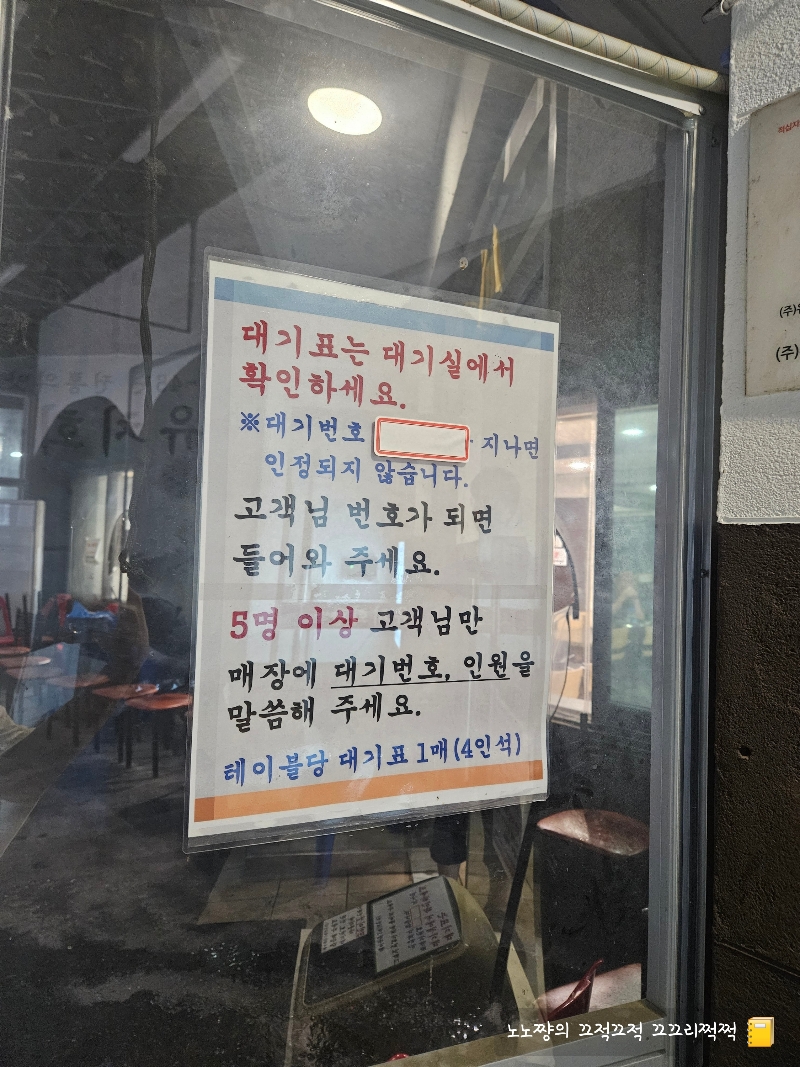 대기표는 대기실에서
확인하세요.
※대기번호 지나면
인정되지 않습니다.
고객님 번호가 되면
들어와 주세요.
5명 이상 고객님만
매장에 대기번호, 인원을
말씀해 주세요.
테이블당 대기표 1매(4인석)
(주)
노노쨩의 끄적끄적 끄끄리쩍쩍